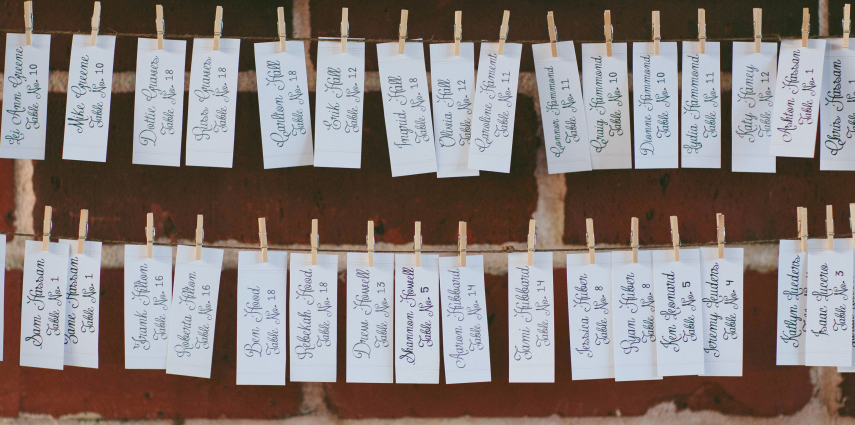 Le Ann Greene
Table No. 10
Mike Greene
Table No. 10
Dottie Graves
Table No. 18
Russ Graves
Table No. 18
Carlton Hall
Table No. 18
Erik Hall
Table No. 12
Ingrid Hall
Table No. 18
Olivia Hall
Table No. 12
Caroline Hament
Table No. 11
Connor Hammond
Table No. 11
Craig Hammond
Table No. 10
Dionne Hammond
Table No. 10
Lydia Hammond
Table No. 11
Katy Haney
Table No. 12
Ashton Hassan
Table No. 1
Chris Hassan
Table No. 1
Sam Hassan
Table No. 1
Zane Hassan
Table No. 1
Frank Hilton
Table No. 16
Roberta Hilton
Table No. 16
Ben Hood
Table No. 18
Rebekah Hood
Table No. 18
Drew Howell
Table No. 13
Shannon Howell
Table No. 5
Aaron Hubbard
Table No. 14
Tami Hubbard
Table No. 14
Jessica Huber
Table No. 8
Ryan Huber
Table No. 8
Ken Leonard
Table No. 5
Jeremy Lueders
Table No. 4
Katlyn Lueders
Isaac Lucero
Table No. 3